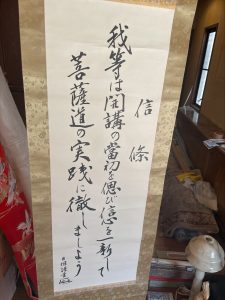 信條
我等は開講の當初を偲び意を一新して
菩薩道の実践に徹しましよう